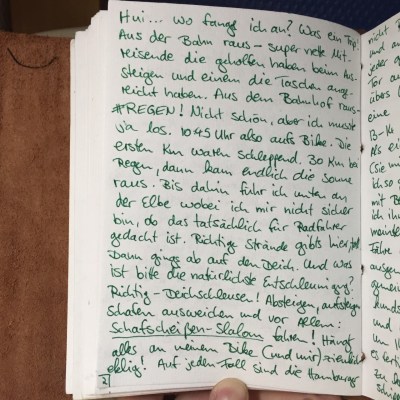 Hui... wo fange ich an? Was ein Trip!
Aus der Bahn raus – super nette Mit-
reisende die geholfen haben beim Aus-
steigen und einem die Taschen ange-
reicht haben. Aus dem Bahnhof raus –
#REGEN! Nicht schön, aber ich musste
ja los. 1045 Uhr also aufs Bike. Die
ersten Km waren schleppend. 30 Km bei
Regen, dann kam endlich die Sonne
raus. Bis dahin fuhr ich unten an
der Elbe wobei ich mir nicht sicher
bin, ob das tatsächlich für Radfahrer
gedacht ist. Richtige Strände gibts hier
Dann gings ab auf den Deich. Und was
ist bitte die natürlichste Entschleunigung?
Richtig – Deichschleusen! Absteigen, aufsteigen
Schafen ausweichen und vor Allem:
Schafscheißen-Slalom fahren! Hängt
alles an meinem Bike (und mir) ziemlich
eklig! Auf jeden Fall sind die Hamburger
2
nicht
und
jeder
Tor
übers
eine
Als ei
(sie
ich so
mit B
ich ih
Fähre
ausge
gemein
und
um
10
es
Zu